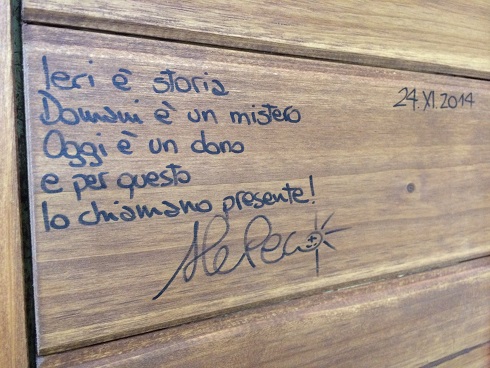 Ieri è storia
Domani è un mistero
Oggi è un dono
e per questo
lo chiamano presente!
24.XI.2014